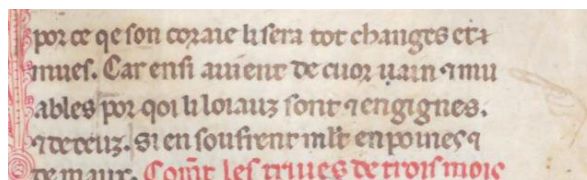 por ce qe son coraie li sera tot changes et
mues. Car ensi auient de cuor uain ⁊ mu
ables por qoi li loiauz sont ⁊ engignes.
⁊ deceuz. si en soufrent mlt en poines ⁊
de maux. Comt les triues de trois mois